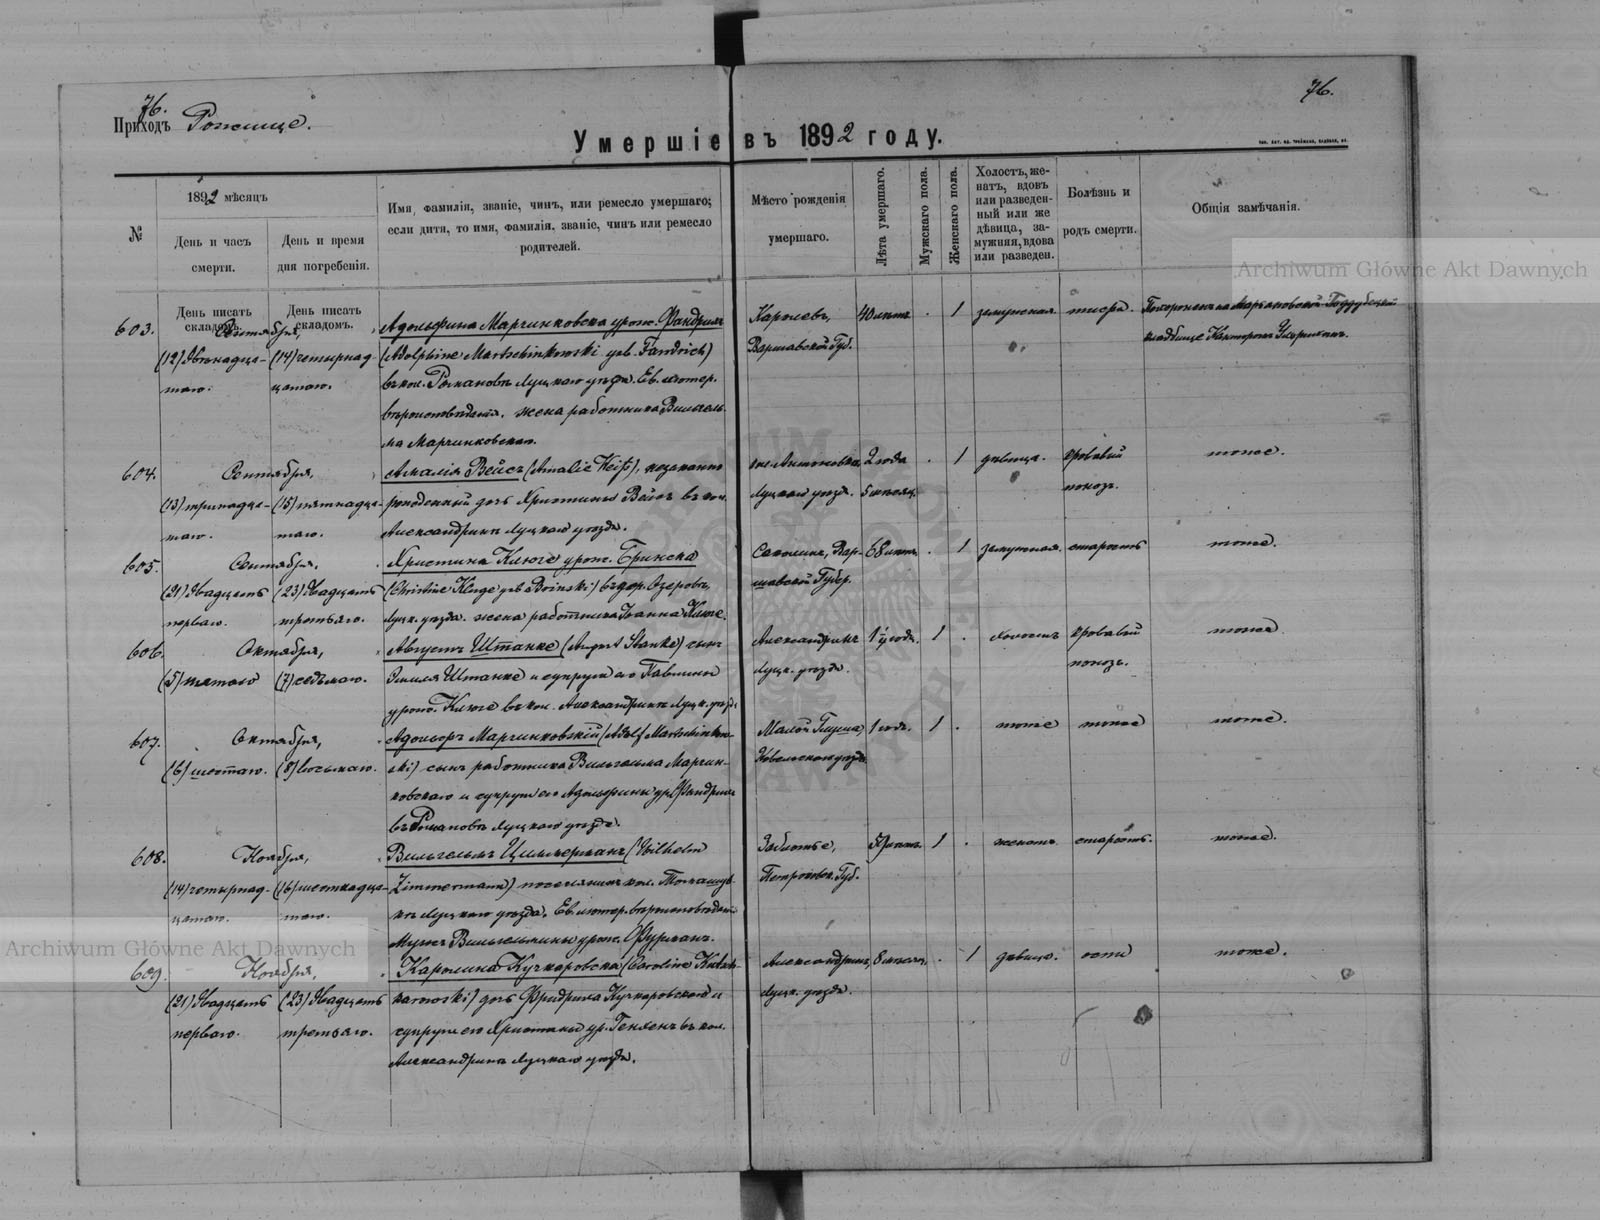 76.
76.
Приходъ Рожище.
Умершіе въ 1892 году.
№
1892 мѣсяцъ
День и часъ смерти.
День и время дня погребенія.
Имя, фамилія, званіе, чинъ, или ремесло умершаго;
если дитя, то имя, фамилія, званіе, чинъ или ремесло
родителей.
Мѣсто рожденія
умершаго.
Лѣта умершаго.
Мужскаго пола.
Женскаго пола.
Холостъ, же-
натъ, вдовъ
или разведен-
ный или же
дѣвица, за-
мужняя, вдова
или разведен.
Болѣзнь и
родъ смерти.
Общія замѣчанія.
Archiwum Główne Akt Dawnych
День писать
складомъ.
День писать
складомъ.
603.
Сентября,
(12) двѣнадца-
таго.
(14) четырнад-
цатаго.
Адольфина Марчинковска урож. Фандрихъ
(Adolphine Martschinkowski geb. Fandrich)
въ кол. Рожановкѣ Луцкаго уѣзда. Ев. лютер.
вѣроисповѣданія. жена работника Вильгель-
ма Марчинковскаго.
Каролевъ,
Варшавской Губ.
40 лѣтъ
.
1
замужняя.
тифъ.
кладбище Канторомъ
604.
Сентября,
(13) тринадца-
таго.
(15) пятнадца-
таго.
Амалія Вейсъ (Amalie Weiß), незаконно
рожденный дочь Христины Вейсъ въ кол.
Александринъ Луцкаго уѣзда.
Антоновка,
Луцкаго уѣзда.
2 года
5 мѣсяц.
.
1
дѣвица.
кровавый
поносъ.
тоже.
605.
Сентября,
(21) двадцать
перваго.
(23) двадцать
третьяго.
Христина Клюге урож. Бринска
(Christine Kluge geb Brinski) въ дер. Озеровъ,
Луцк. уѣзда. жена работника Іоанна Клюге.
Вар-
шавской Губер.
68 лѣтъ
.
1
замужная.
старость
тоже.
606.
Октября,
(5) пятаго
(7) седьмаго.
Августъ Штанке (August Stanke) сынъ
Эмиля Штанке и супруги его Павлины
урож. Клюге въ кол. Александринъ Луцк. уѣзда
Александринъ
Луцк. уѣзда.
1
.
холостъ
кровавый
поносъ.
тоже
607.
Октября,
(6) шестаго.
(8) восьмаго.
Адольфъ Марчинковскій (Adolf Martschinkow-
ski) сынъ работника Вильгельма Марчин-
ковскаго и супруги его Адольфины ур. Фандрихъ
въ Рожановкѣ Луцкаго уѣзда.
Малой Глуша,
Ковельскаго уѣзда
1 годъ.
1
.
тоже
тоже
тоже.
608.
Ноября,
(14) четырнад-
цатаго.
(16) шестнадца-
таго.
Вильгельмъ Циммерманъ (Wilhelm
Zimmermann) поселянинъ кол.
Луцкаго уѣзда. Ев. лютер. вѣроисповѣданія
Мужъ Вильгельмины урож. Фурманъ.
Заблотье,
Петроков. Губ.
лѣтъ
1
.
женатъ
старость.
тоже.
Archiwum Główne Akt Dawnych
609.
Ноября,
(21) двадцать
перваго.
(23) двадцать
третьяго.
Каролина Кучкаровска (Caroline Kutsch-
karowski) дочь Фридриха Кучкаровскаго и
супруги его Христины ур. въ кол.
Александринъ Луцкаго уѣзда.
Александринъ,
Луцк. уѣзда.
8 мѣсяц.
.
1
дѣвица.
оспа
тоже.